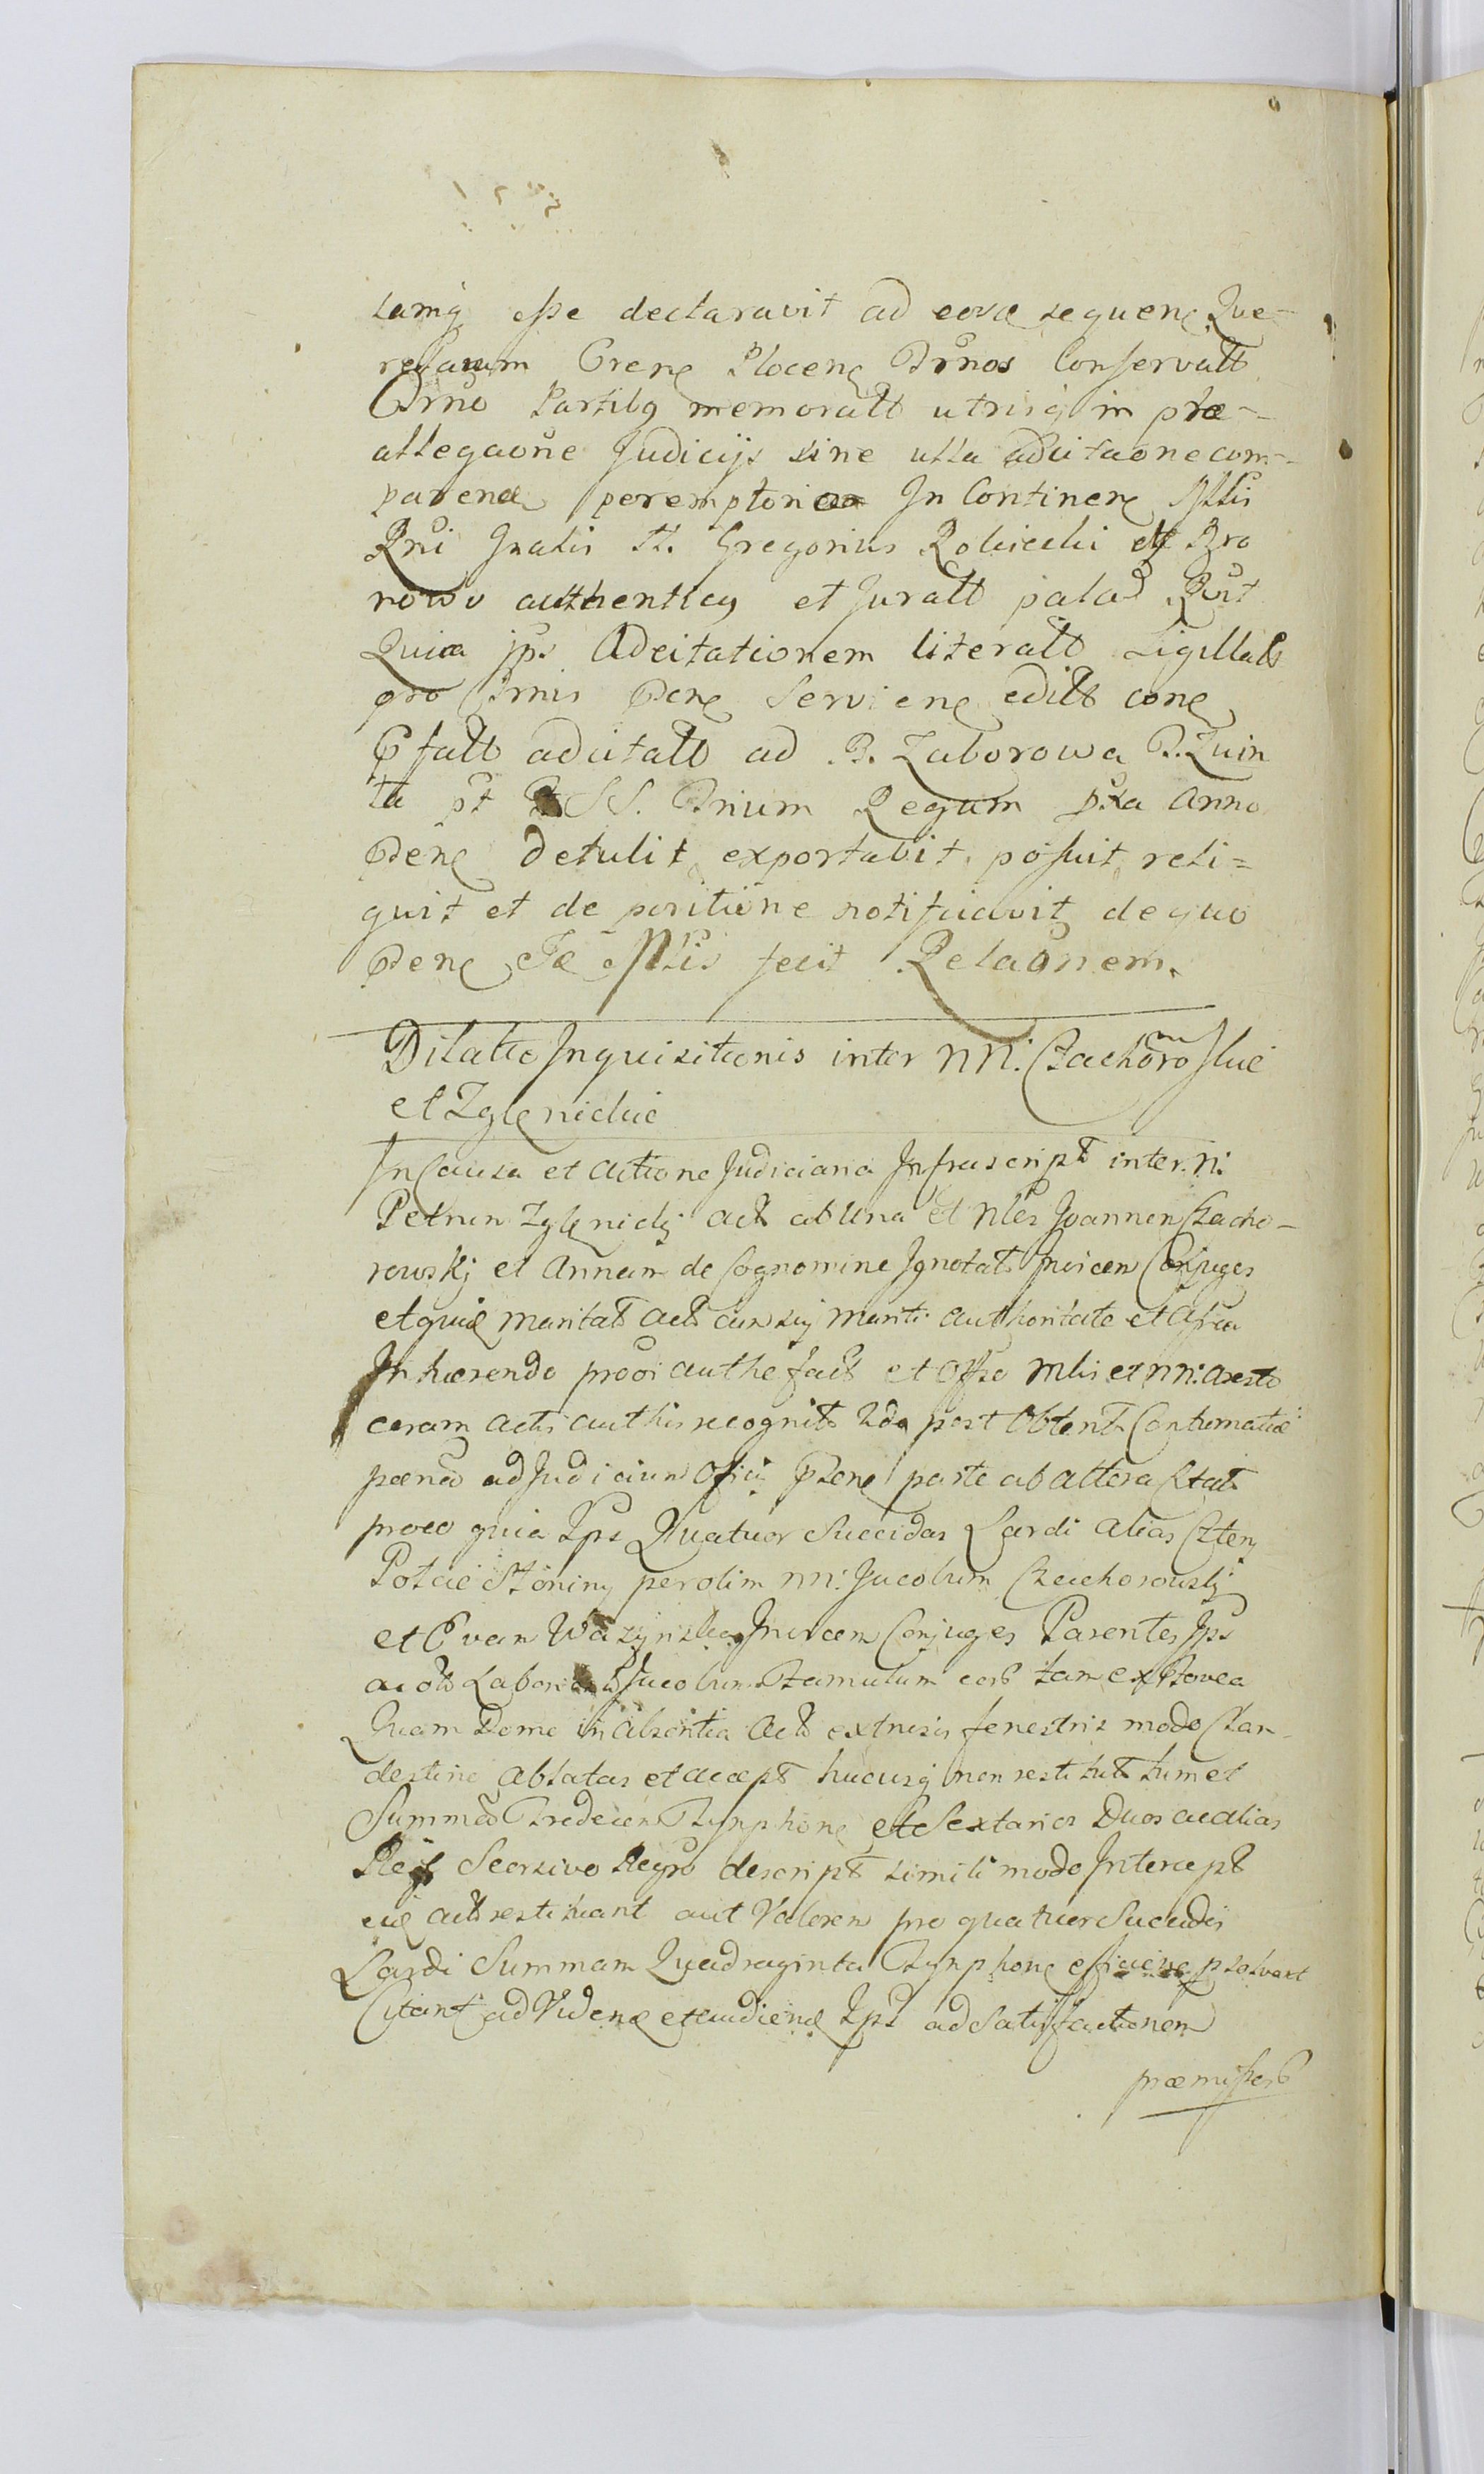 tamq esse declaravit ad eord sequenc Que-
relarum Grenc Plocenc Trnos Conservatt
Trno Partibq memoratt utrisq in præ-
allegaone Judicijs sine ulla adcitaone com-
parend peremptorie In Continenc Mltis
Rni Gnalis st. Gregorius Robicchi de Bro
nowo authenticq et Juratt palad Recit
Quia jps Adcitationem literatt Sigillatt
pro Trnis Pdenc Servienc editt conc
adcitatt ad B. Zaborowa F. Quin
ta pt SS. Trium Regum pxa Anno
Pdenc detulit exportavit posuit reli=
quit et de positione notificavit de quo
Pdenc fecit Relaonem.
Dilatio Inquisitionis inter NN: Czachorowskie
et Zglenickie
In Causa et actione Judiciaria Infrascript inter N:
Petrum Zglenicki act ab una et Nles Joannem Czacho-
rowskj et Annam de Cognomine Ignotat Invicem Conjuges
et quid maritat act cum suj mariti authoritate et assia
Inhærendo procj authe fact et Offo Mlis et NN: aresto
coram actis authis recognito Ida post Obtent Contumatiæ
pænad ad Judicium Officij Pdenc parte ab altera Citat
proeo quia Ips Quatuor Succidas Lardi alias Cztery
Potcie Słoniny perolim NN: Jacobum Czachorowskj
et Evam Wazynska Invicem Conjuges Parentes Ips
ac Jacobum Famulum eord tam ex Fovea
Quam Domo in absentia Act extrusis fenestris modo Clan-
destino ablatas et accept hucusq non restitut tum et
Summad Tredecem Tynphonc et Sextarios Duos ac alias
Res Seorsivo Regro descript simili modo Intercept
eid act restituant aut Valorem pro quatuor Succidis
Lardi Summam Quadraginta Tynphonc efficienc psolvant
Citant ad Videnc et audienc Ips ad Satisfactionem
præmissord